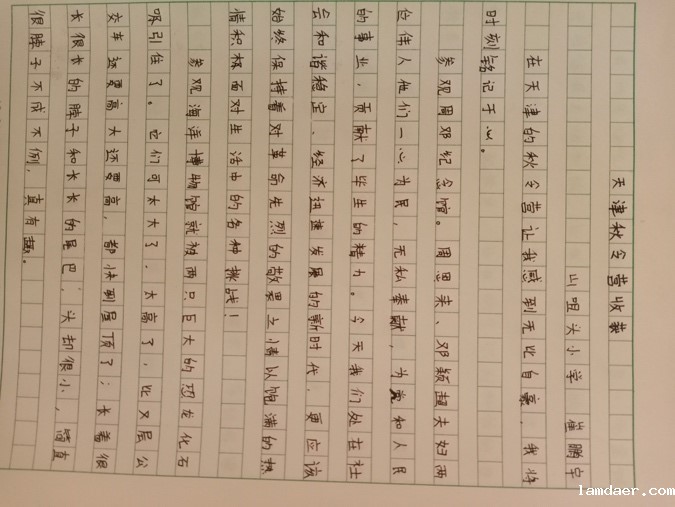 天津秋令营收获
山咀头小学 崔鹏宇
在天津的秋令营让我感到无比自豪，我将
时刻铭记于心。
参观周邓纪念馆。周恩来、邓颖超夫妇两
位伟人他们一心为民，无私奉献，为党和人民
的事业，贡献了毕生的精力。今天我们处在社
会和谐稳定、经济迅速发展的新时代，更应该
始终保持着对革命先烈的敬畏之情以饱满的热
情积极面对生活中的各种挑战！
参观海洋博物馆就被两只巨大的恐龙化石
吸引住了。它们可太大了、太高了，比双层公
交车还要高大还要高，都快到屋顶了；长着很
长很长的脖子和长长的尾巴，头却很小，简直
很脖子不成不例，真有趣。
lamdaer.com